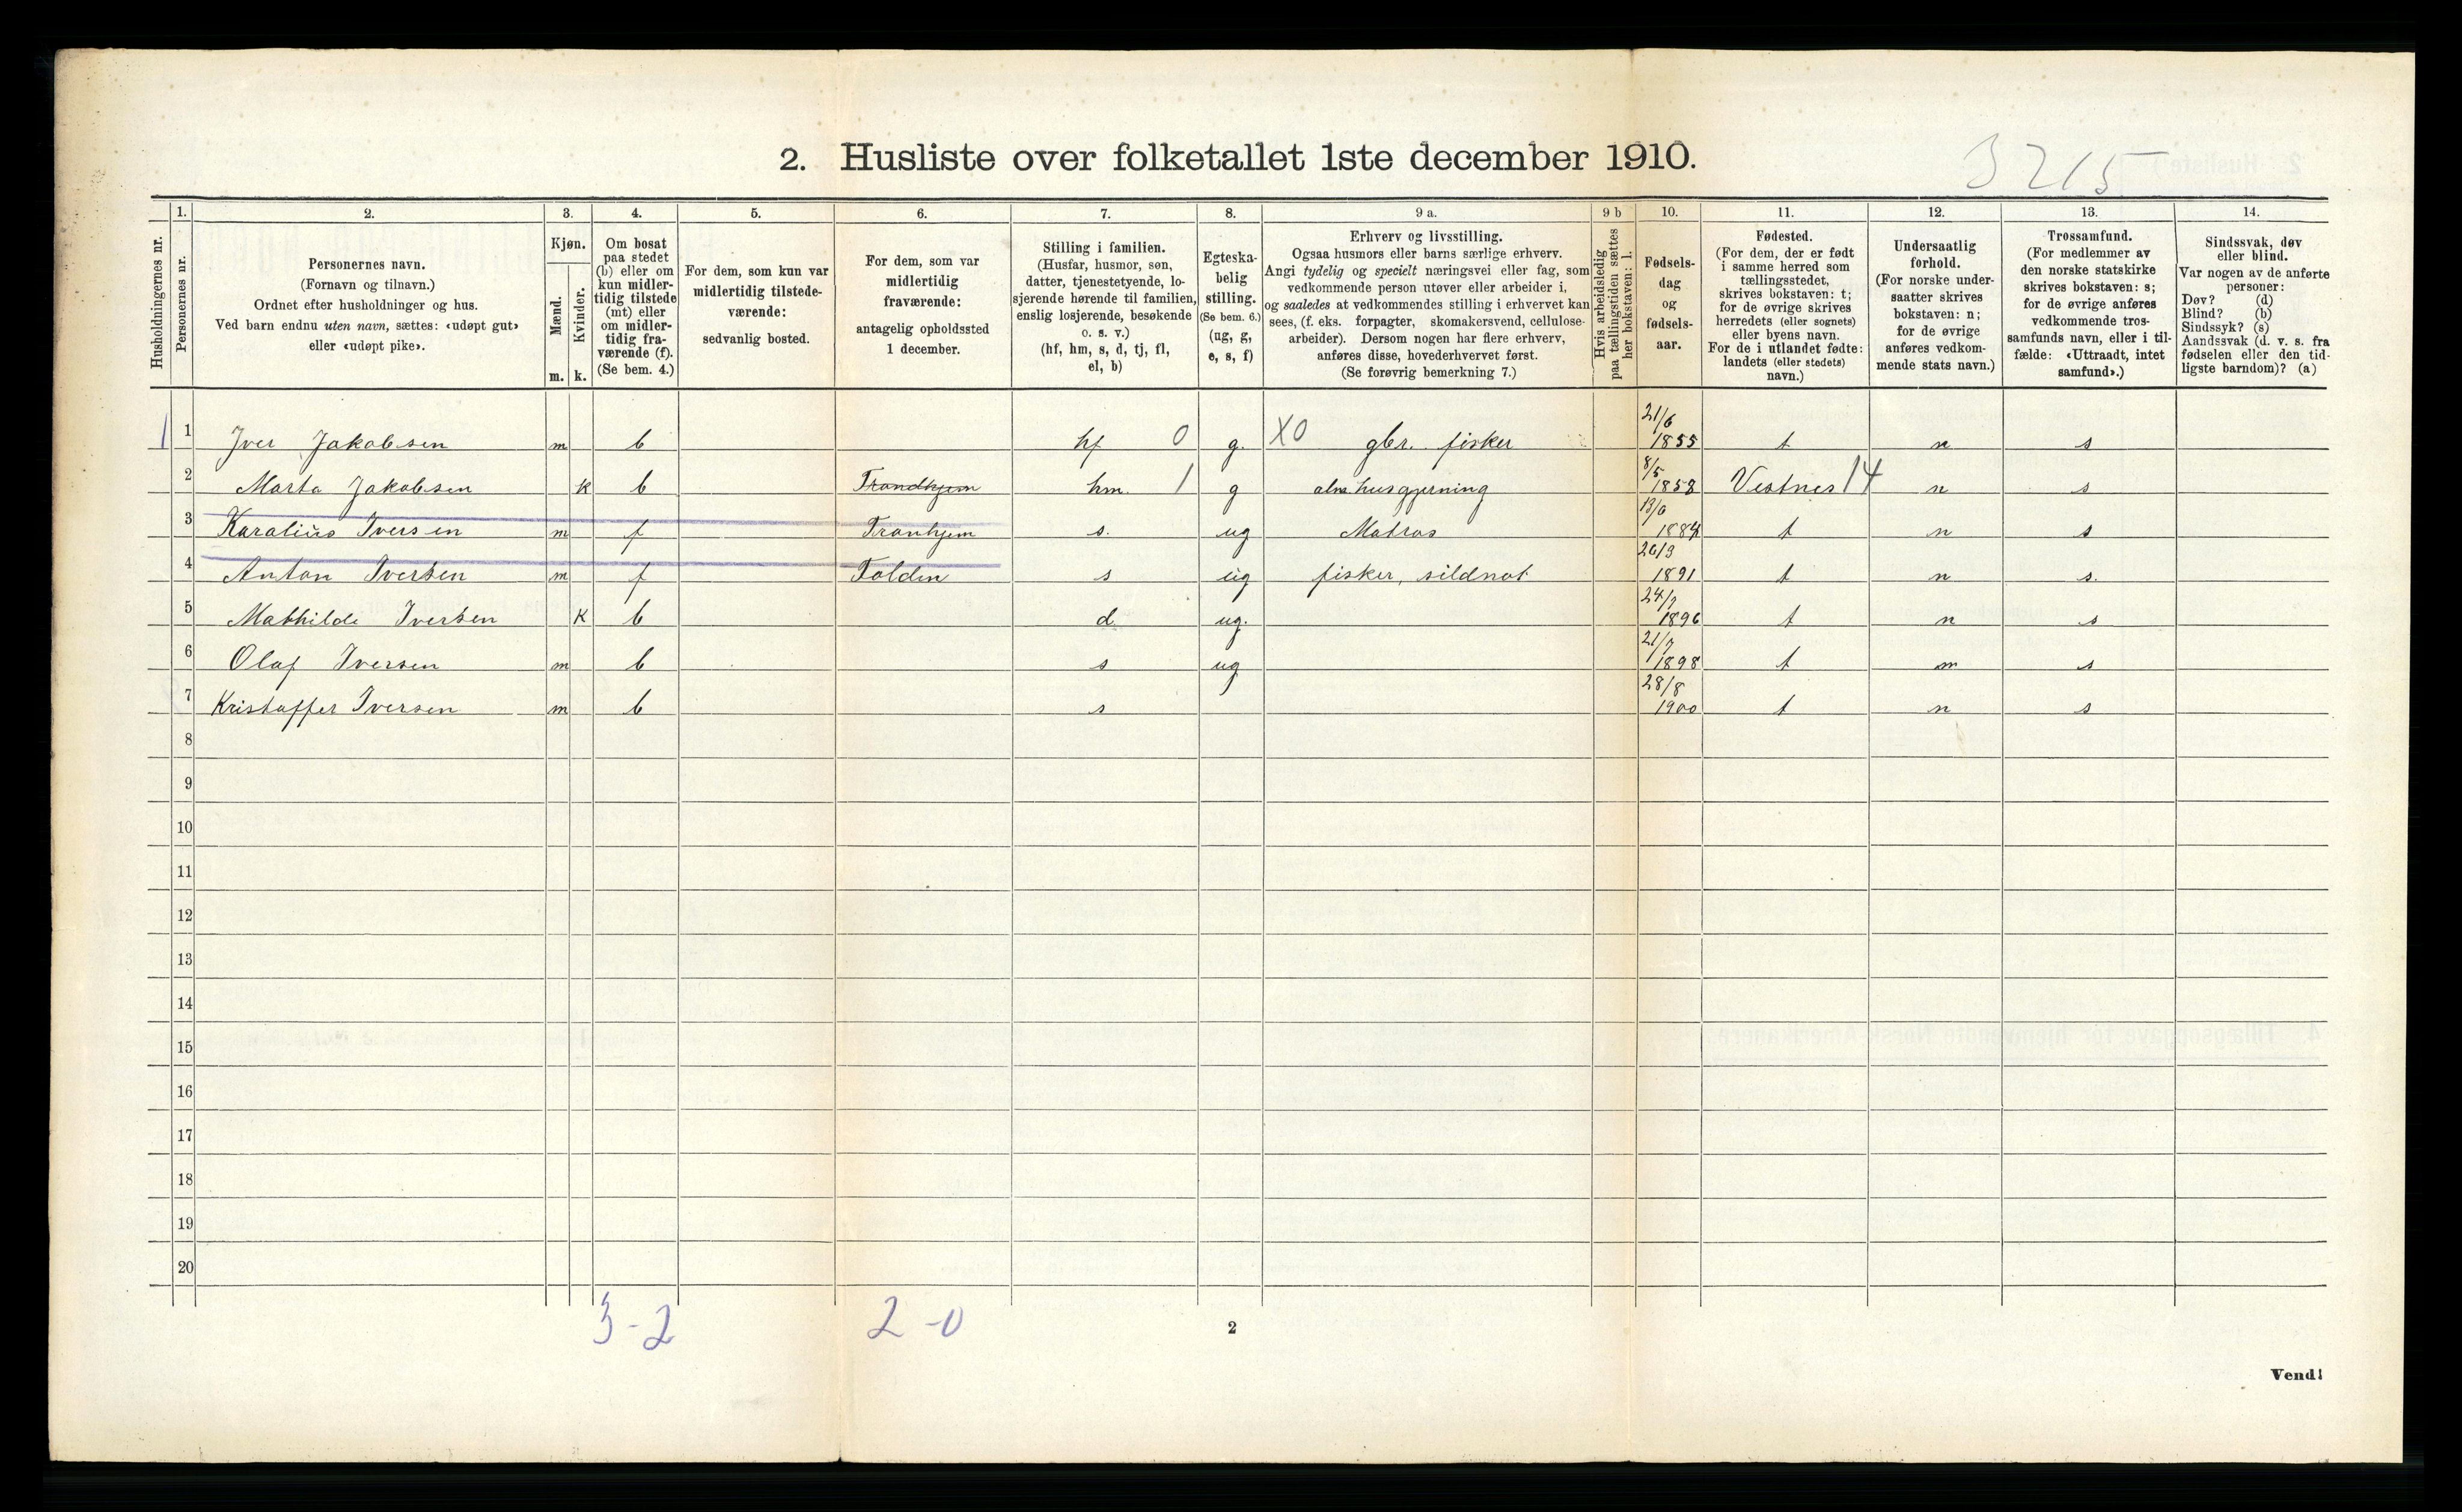 2. Husliste over folketallet 1ste december 1910.
3215
Husholdningernes nr.
1.
Personernes nr.
2.
Personernes navn.
(Fornavn og tilnavn.)
Ordnet efter husholdninger og hus.
Ved barn endnu uten navn, sættes: «udøpt gut»
eller «udøpt pike».
3.
Kjøn.
Mænd.
Kvinder.
m. k.
4.
Om bosat
paa stedet
(b) eller om
kun midler-
tidig tilstede
(mt) eller
om midler-
tidig fra-
værende (f).
(Se bem. 4.)
5.
For dem, som kun var
midlertidig tilstede-
værende:
sedvanlig bosted.
6.
For dem, som var
midlertidig
fraværende:
antagelig opholdssted
1 december.
7.
Stilling i familien.
(Husfar, husmor, søn,
datter, tjenestetyende, lo-
sjerende hørende til familien,
enslig losjerende, besøkende
o. s. v.)
(hf, hm, s, d, tj, fl,
el, b)
8.
Egteska-
belig
stilling.
(Se bem. 6.)
(ug, g,
e, s, f)
9 a.
Erhverv og livsstilling.
Ogsaa husmors eller barns særlige erhverv.
Angi tydelig og specielt næringsvei eller fag, som
vedkommende person utøver eller arbeider i,
og saaledes at vedkommendes stilling i erhvervet kan
sees, (f. eks. forpagter, skomakersvend, cellulose-
arbeider). Dersom nogen har flere erhverv,
anføres disse, hovederhvervet først.
(Se forøvrig bemerkning 7.)
9 b
Hvis arbeidsledig
paa tællingstiden sættes
her bokstaven: l.
10.
Fødsels-
dag
og
fødsels-
aar.
11.
Fødested.
(For dem, der er født
i samme herred som
tællingsstedet,
skrives bokstaven: t;
for de øvrige skrives
herredets (eller sognets)
eller byens navn.
For de i utlandet fødte:
landets (eller stedets)
navn.)
12.
Undersaatlig
forhold.
(For norske under-
saatter skrives
bokstaven: n;
for de øvrige
anføres vedkom-
mende stats navn.)
13.
Trossamfund.
(For medlemmer av
den norske statskirke
skrives bokstaven: s;
for de øvrige anføres
vedkommende tros-
samfunds navn, eller i til-
fælde: «Uttraadt, intet
samfund».)
14.
Sindssvak, døv
eller blind.
Var nogen av de anførte
personer:
Døv? (d)
Blind? (b)
Sindssyk? (s)
Aandssvak (d. v. s. fra
fødselen eller den tid-
ligste barndom)? (a)
1 1 Iver Jakobsen m b hf 0 g. X0 gbr. fisker 21/6 1855 t n s
2 Marta Jakobsen k b Trondhjem hm. 1 g alm husgjerning 8/5 1858 Vestnes 14 n s
3 Karolius Iversen m f Tronhjem s. ug Matros 1884 t n s
4 Anton Iversen m f Folden s ug fisker, sildnot 26/9 1891 t n s.
5 Mathilde Iversen k b d ug. 24/7 1896 t n s
6 Olaf Iversen m b s ug 21/7 1898 t m s
7 Kristoffer Iversen m b s 28/8 1900 t n s
8
9
10
11
12
13
14
15
16
17
18
19
20
3-2 2-0
2
Vend!